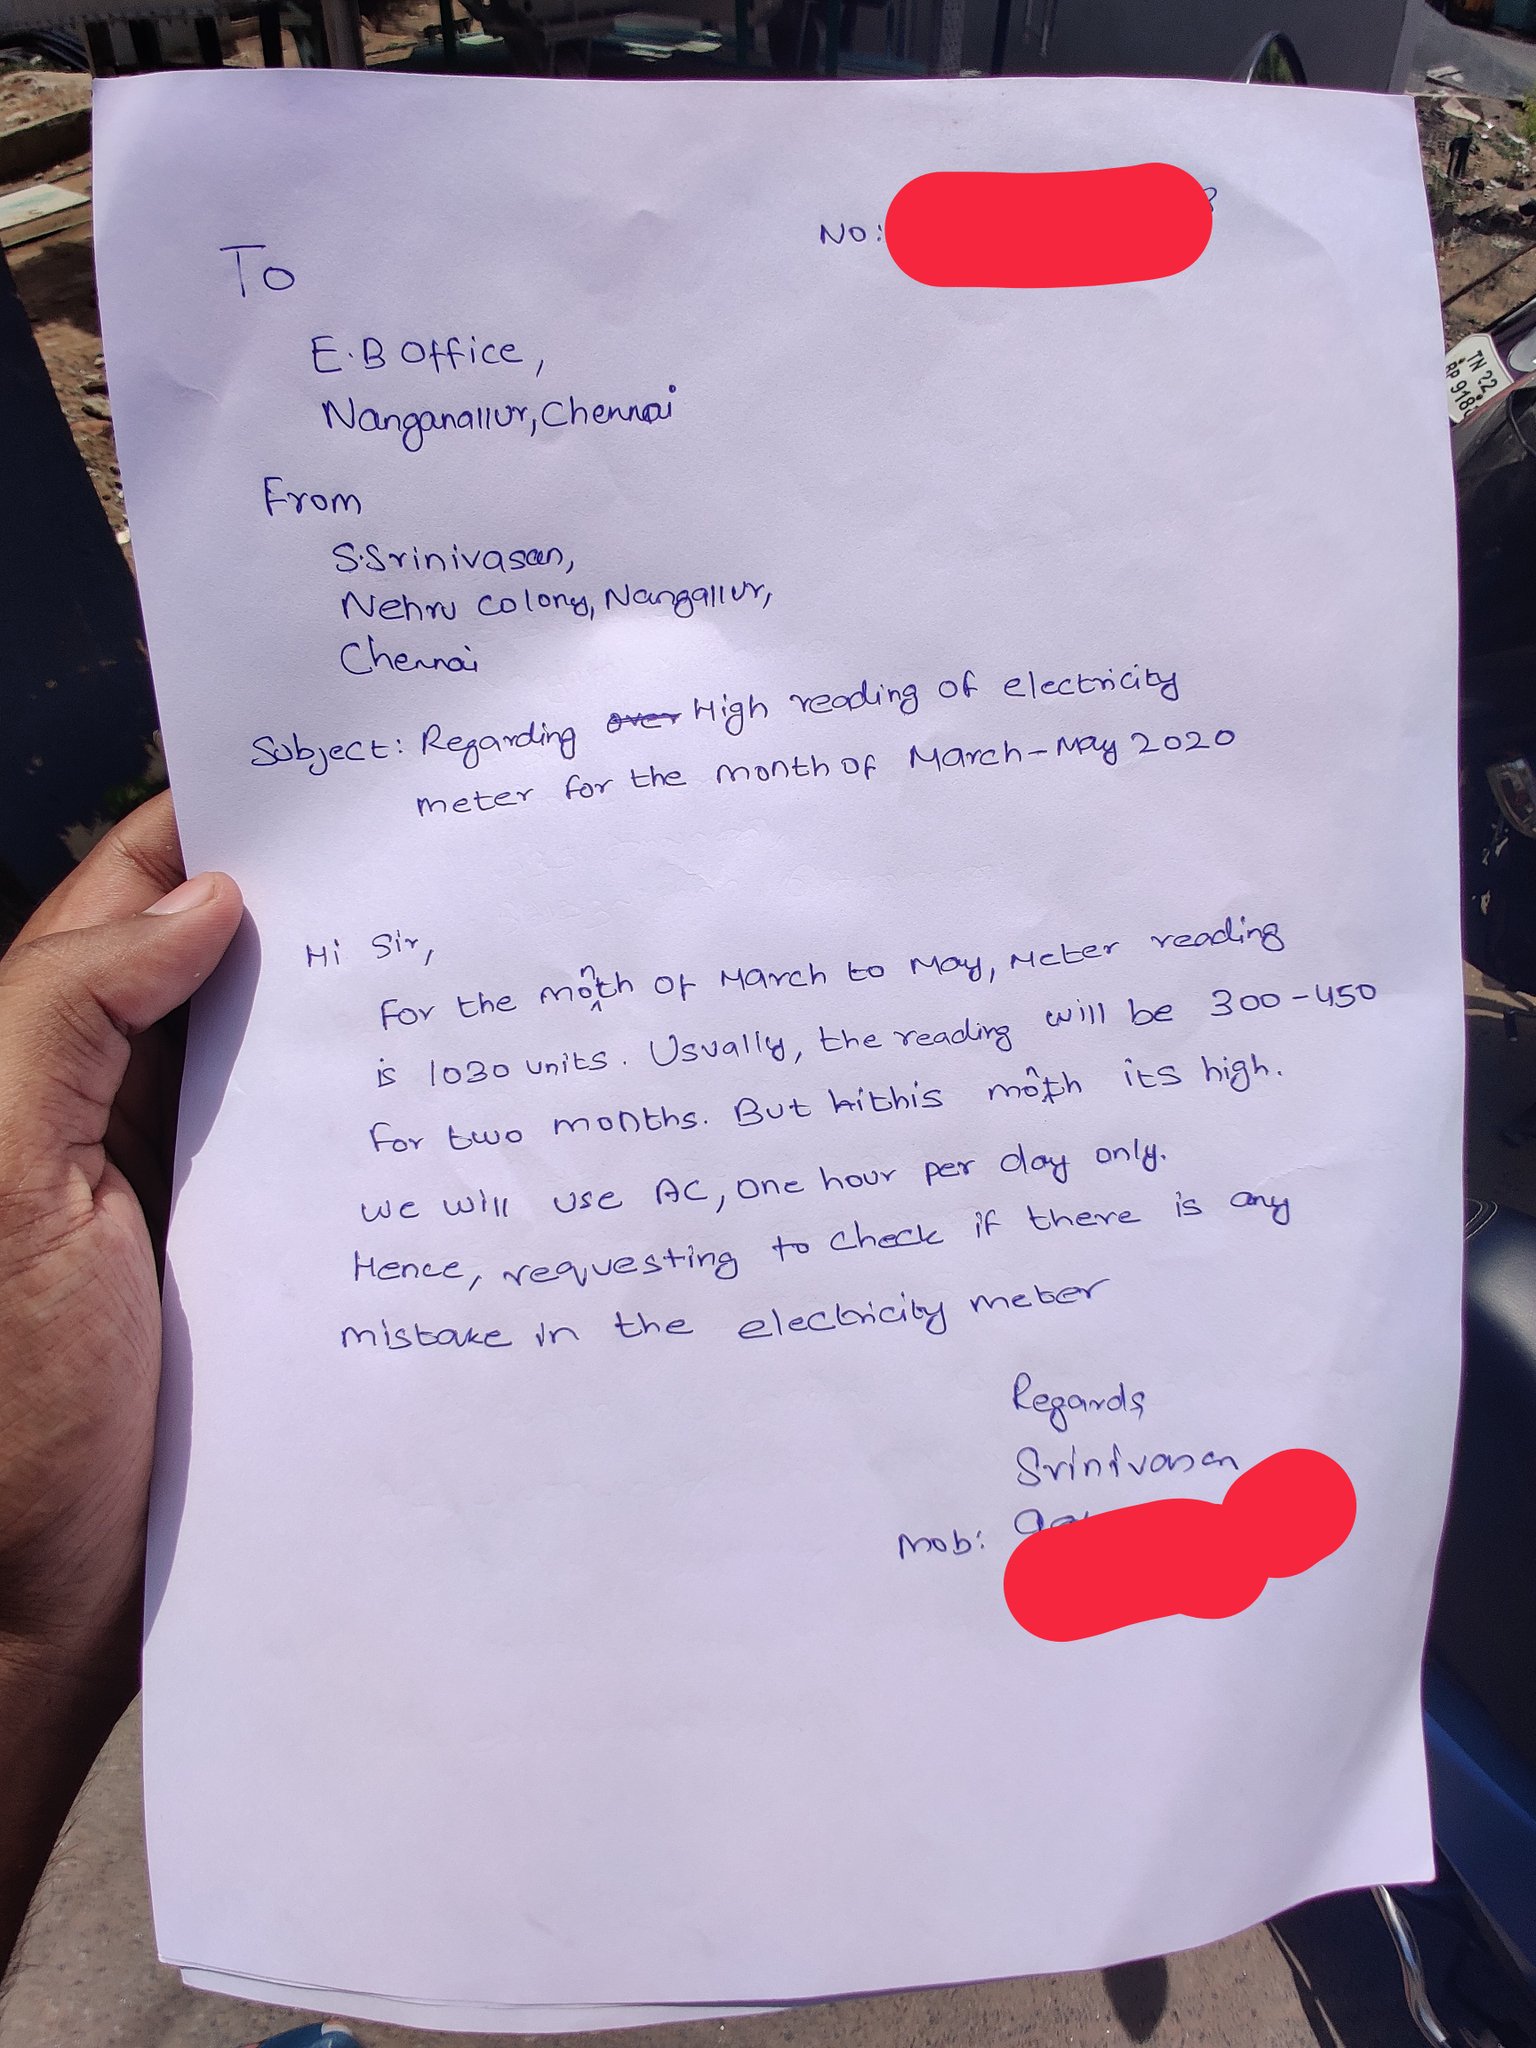 No:
To
E.B Office,
Nanganallur, Chennai
From
S.Srinivasan,
Nehru colony, Nangallur,
Chennai
Subject: Regarding over High reading of electricity
meter for the month of March-May 2020
Hi Sir,
For the month of March to May, Meter reading
is 1030 units. Usually, the reading will be 300-450
for two months. But this month its high.
We will use AC, one hour per day only.
Hence, requesting to check if there is any
mistake in the electricity meter
Regards
Srinivasan
Mob:
TN 22